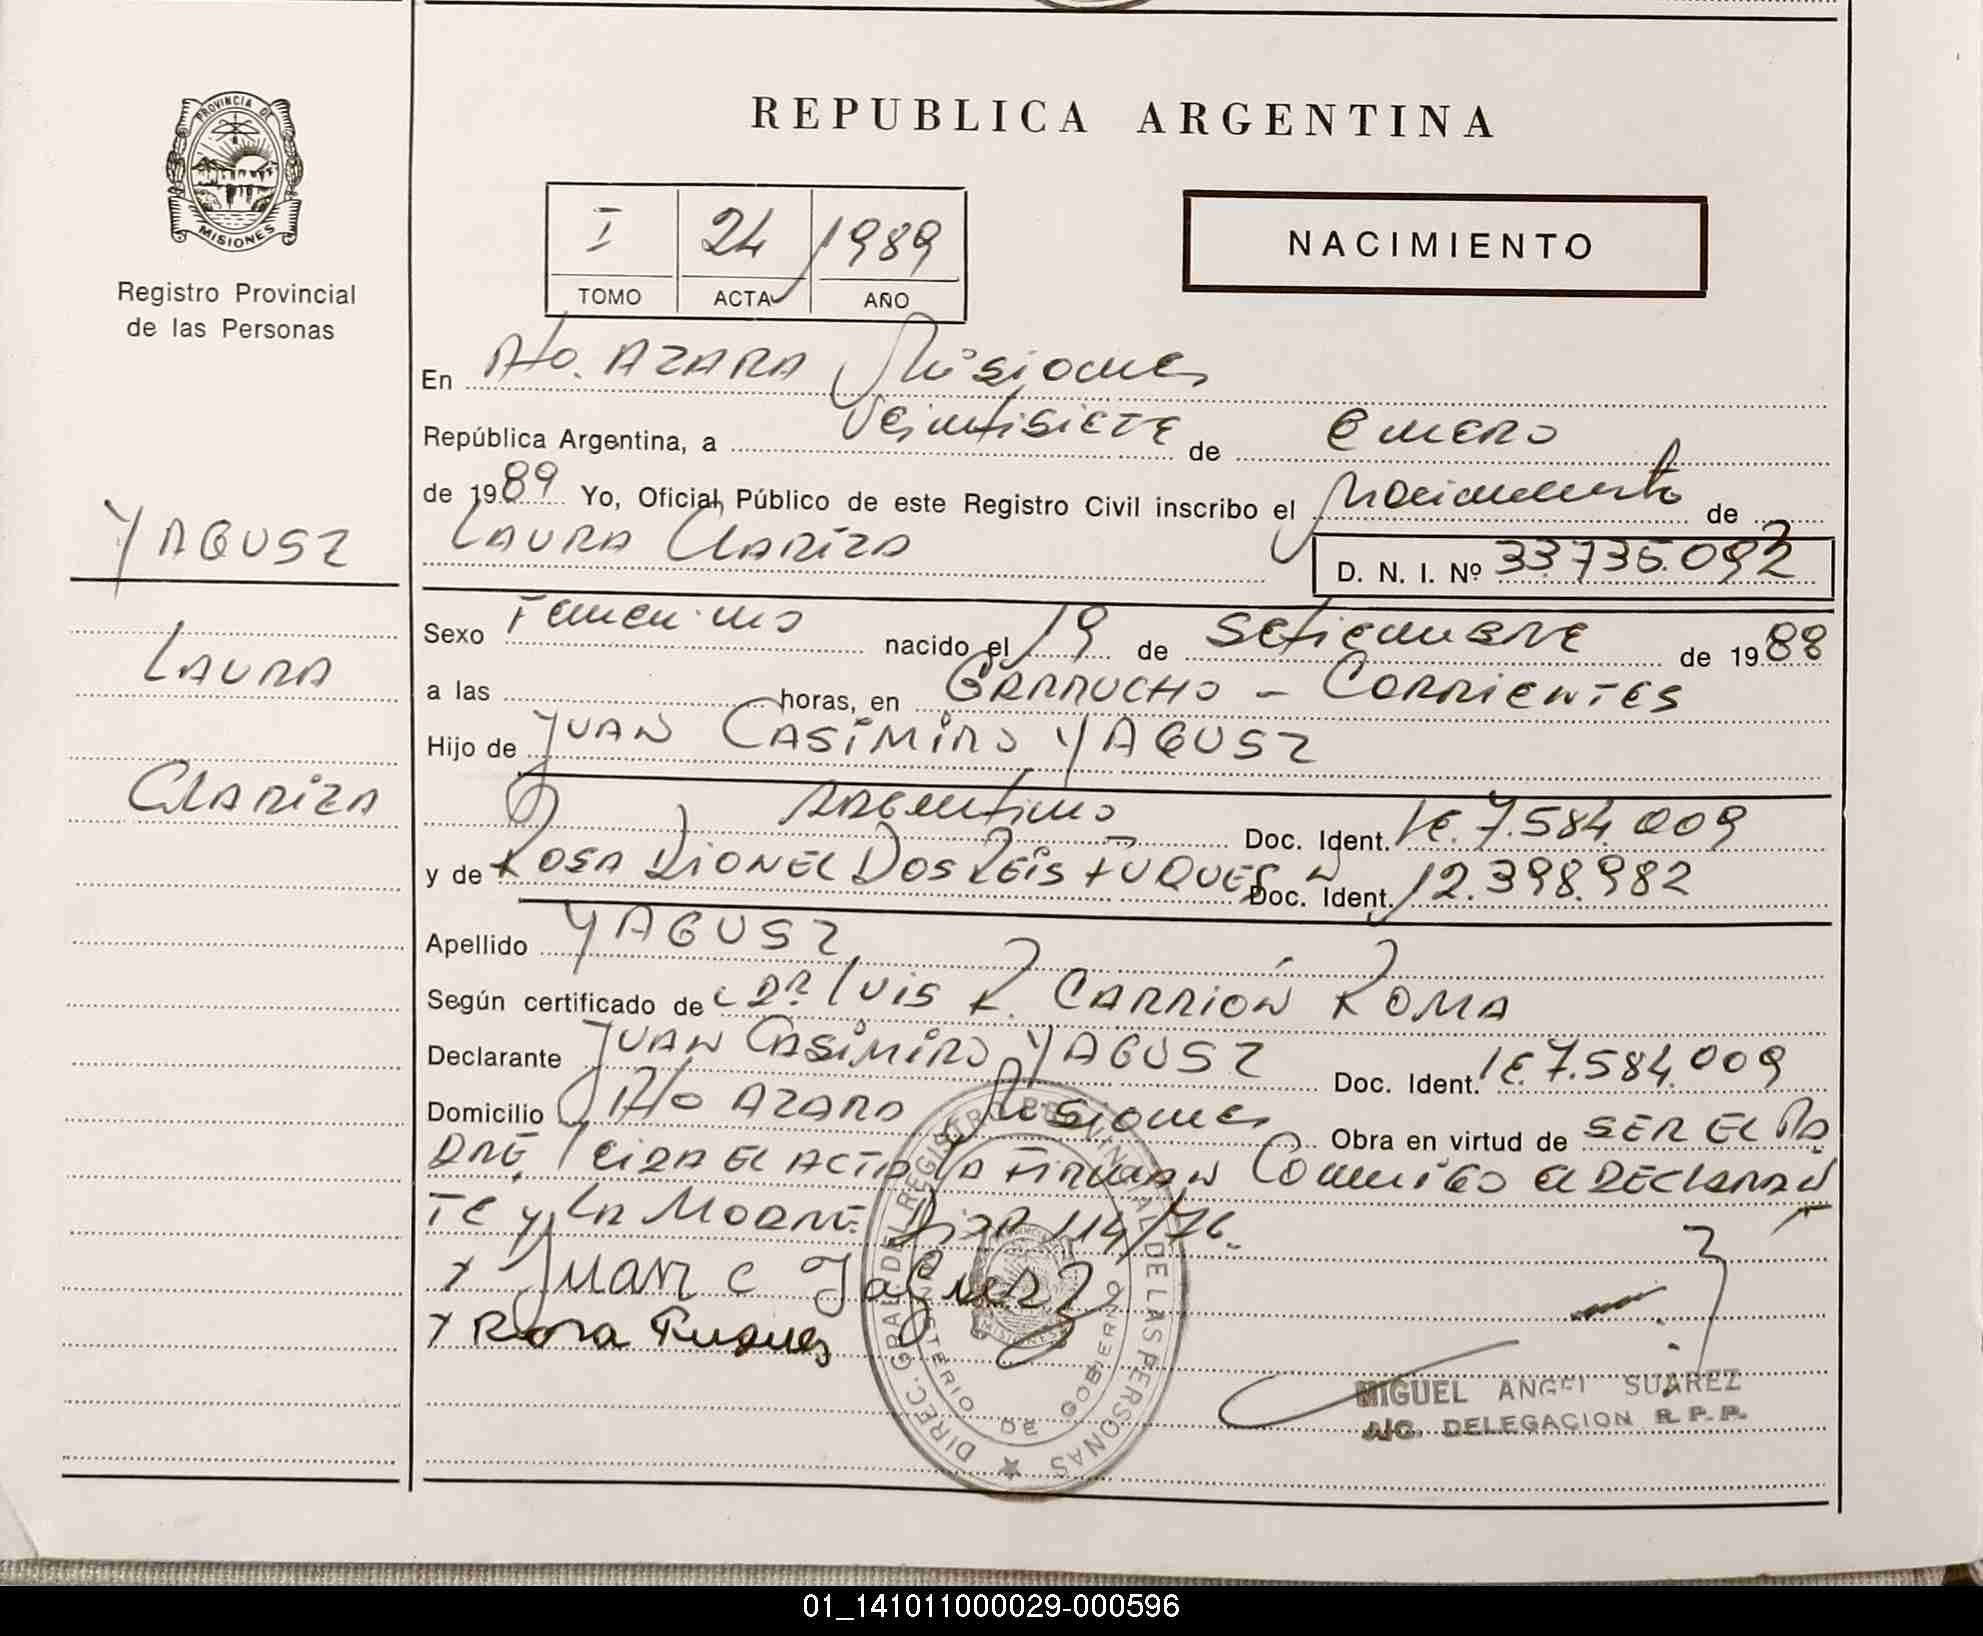 PROVINCIA DE
MISIONES
Registro Provincial
de las Personas
YAGUSZ
LAURA
CLARIZA
REPUBLICA ARGENTINA
I 24 1989
TOMO ACTA AÑO
NACIMIENTO
En Pto. AZARA Misiones
República Argentina, a Veintisiete de Enero
de 1989 Yo, Oficial Público de este Registro Civil inscribo el Nacimiento de
LAURA CLARIZA D. N. I. Nº 33.735.092
Sexo Femenino nacido el 19 de Setiembre de 1988
a las horas, en GARRUCHO - CORRIENTES
Hijo de JUAN CASIMIRO YAGUSZ
ARGENTINO Doc. Ident. LE. 7.584.009
y de ROSA LIONEL DOS REIS FUQUES Doc. Ident. 12.398.982
Apellido YAGUSZ
Según certificado de DR. LUIS R. CARRIÓN ROMA
Declarante JUAN CASIMIRO YAGUSZ Doc. Ident. LE. 7.584.009
Domicilio Pto AZARA Misiones Obra en virtud de SER EL PA
DRE, LEIDA EL ACTA LA FIRMAN CONMIGO EL DECLARAN
TE Y LA MADRE Disp 114/76.
x Juan C Jaguez
x Rosa Fuques
DIREC. GRAL DEL REGISTRO PROVINCIAL DE LAS PERSONAS
MINISTERIO DE GOBIERNO
MISIONES
MIGUEL ANGEL SUAREZ
A/C. DELEGACION R. P. P.
01_141011000029-000596